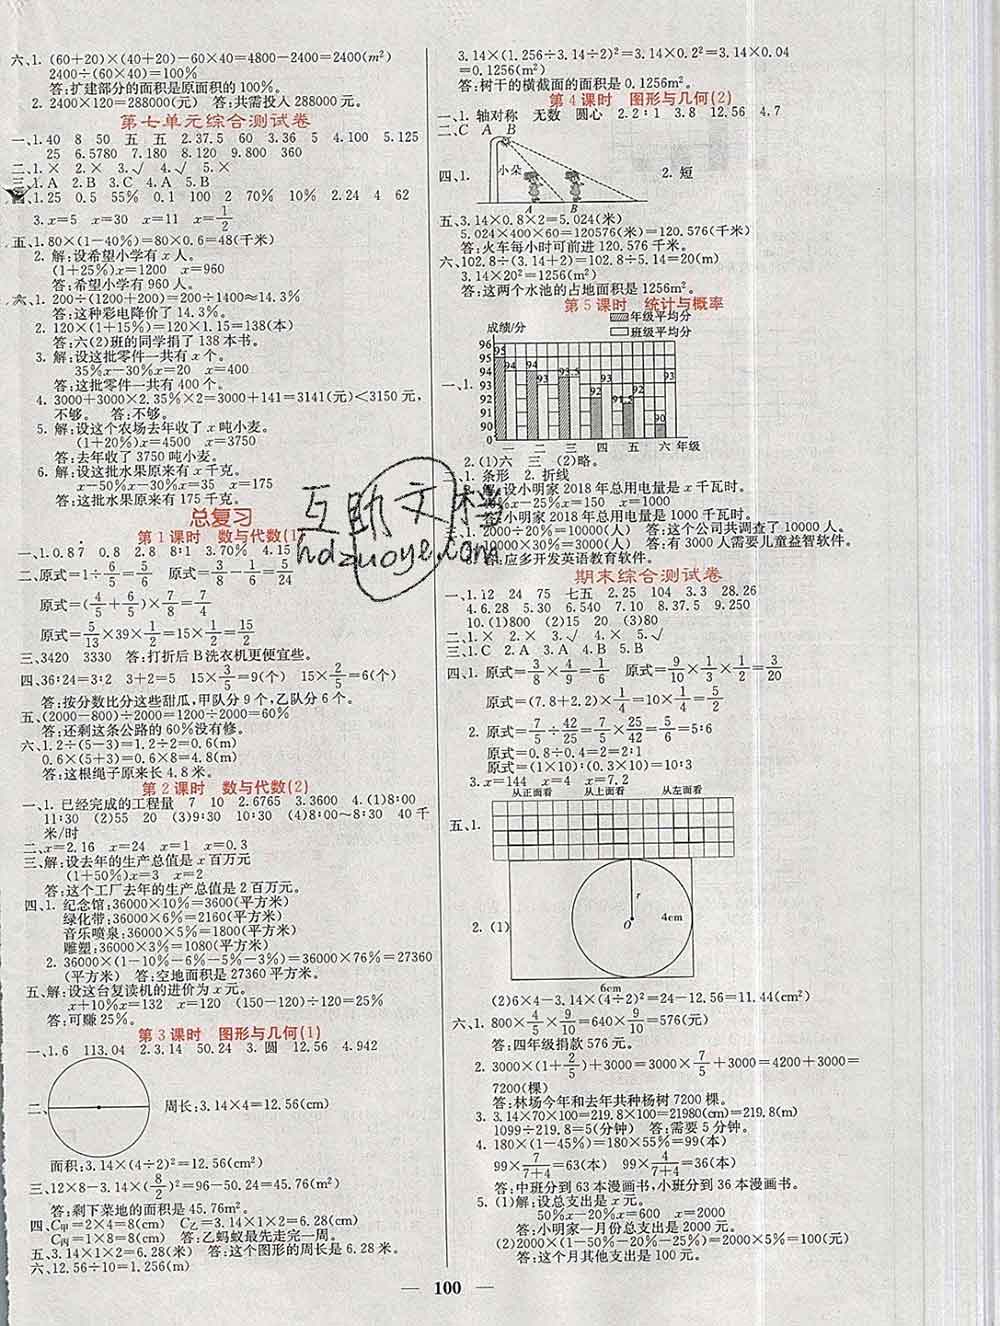 六、1. (60+20)×(40+20)-60×40=4800-2400=2400(m²)
2400÷(60×40)=100%
答:扩建部分的面积是原面积的100%。
2. 2400×120=288000(元) 答:共需投入 288000元。
第七单元综合测试卷
一、1. 40 8 50 五 五 2. 37.5 60 3. 36 5 4. 100 5. 125
25 6. 5780 7. 180 8. 120 9. 800 360
二、1. × 2. × 3. √ 4. √ 5. ×
三、1. A 2. B 3. C 4. A 5. B
四、1. 25 0.5 55% 0.1 100 2 70% 10% 2. 24 4 62
3. x=5 x=30 x=11 x=1/2
五、1. 80×(1-40%)=80×0.6=48(千米)
2. 解:设希望小学有 x 人。
(1+25%)x=1200 x=960
答:希望小学有 960 人。
六、1. 200÷(1200+200)=200÷1400≈14.3%
答:这种彩电降价了 14.3%。
2. 120×(1+15%)=120×1.15=138(本)
答:六(2)班的同学捐了 138 本书。
3. 解:设这批零件一共有 x 个。
35%x-30%x=20 x=400
答:这批零件一共有 400 个。
4. 3000+3000×2.35%×2=3000+141=3141(元)<3150 元,
不够。 答:不够。
5. 解:设这个农场去年收了 x 吨小麦。
(1+20%)x=4500 x=3750
答:去年收了 3750 吨小麦。
6. 解:设这批水果原来有 x 千克。
x-50%x-30%x=35 x=175
答:这批水果原来有 175 千克。
总复习
第 1 课时 数与代数(1)
一、1. 0.87 0.8 2. 8 8:1 3. 70% 4. 15
二、原式=1÷6/5=5/6 原式=3/8-1/6=5/24
原式=(4/5+6/5)×7/8=7/4
原式=5/13×39×1/2=15×1/2=15/2
三、3420 3330 答:打折后 B 洗衣机更便宜些。
四、36:24=3:2 3+2=5 15×3/5=9(个) 15×2/5=6(个)
答:按分数比分这些甜瓜,甲队分 9 个,乙队分 6 个。
五、(2000-800)÷2000=1200÷2000=60%
答:还剩这条公路的 60%没有修。
六、1.2÷(5-3)=1.2÷2=0.6(m)
0.6×(5+3)=0.6×8=4.8(m)
答:这根绳子原来长 4.8 米。
第 2 课时 数与代数(2)
一、1. 已经完成的工程量 7 10 2. 6765 3. 3600 4. (1)8:00
11:30 (2)55 20 (3)9:30 10:30 (4)8:00~8:30 40 千
米/时
二、x=2.16 x=24 x=1 x=0.3
三、解:设去年的生产总值是 x 百万元
(1+50%)x=3 x=2
答:这个工厂去年的生产总值是 2 百万元。
四、1. 纪念馆:36000×10%=3600(平方米)
绿化带:36000×6%=2160(平方米)
音乐喷泉:36000×5%=1800(平方米)
雕塑:36000×3%=1080(平方米)
2. 36000×(1-10%-6%-5%-3%)=36000×76%=27360
(平方米) 答:空地面积是 27360 平方米。
五、解:设这台复读机的进价为 x 元。
x+10%x=132 x=120 (150-120)÷120=25%
答:可赚 25%。
第 3 课时 图形与几何(1)
一、1. 6 113.04 2. 3.14 50.24 3. 圆 12.56 4. 942
二、
周长:3.14×4=12.56(cm)
面积:3.14×(4÷2)²=12.56(cm²)
三、12×8-3.14×(8/2)²=96-50.24=45.76(m²)
答:剩下菜地的面积是 45.76m²。
四、C甲=2×4=8(cm) C乙=3.14×1×2=6.28(cm)
C丙=1×8=8(cm) 答:乙蚂蚁最先走完一周。
五、3.14×1×2=6.28(米) 答:这个图形的周长是 6.28 米。
六、12.56÷10=1.256(m)
3.14×(1.256÷3.14÷2)²=3.14×0.2²=3.14×0.04
=0.1256(m²)
答:树干的横截面的面积是 0.1256m²。
第 4 课时 图形与几何(2)
一、1. 轴对称 无数 圆心 2. 2:1 3. 8 12.56 4. 7
二、C
A B
四、1.
小朵
A B
2. 短
五、3.14×0.8×2=5.024(米)
5.024×400×60=120576(米)=120.576(千米)
答:火车每小时可前进 120.576 千米。
六、102.8÷(3.14+2)=102.8÷5.14=20(m)
3.14×20²=1256(m²)
答:这两个水池的占地面积是 1256m²。
第 5 课时 统计与概率
年级平均分
班级平均分
成绩/分
一、1.
96
95
94
93
92
91
90
0
95 94 94 93 93.5 93 92 92 91.5 92 90 93
一 二 三 四 五 六 年级
2. (1)六 三 (2)略。
1. 条形 2. 折线
解:设小明家 2018 年总用电量是 x 千瓦时。
x-25%x=150 x=1000
答:小明家 2018 年总用电量是 1000 千瓦时。
1. 2000÷20%=10000(人) 答:这个公司共调查了 10000 人。
10000×30%=3000(人) 答:有 3000 人需要儿童益智软件。
答:应多开发英语教育软件。
期末综合测试卷
一、1. 12 24 75 七五 2. 25 104 3. 3 28.26
4. 6.28 5. 30 6. 540 7. 10 8. 37.5 9. 250
10. (1)80 (2)15 20 (3)80
二、1. × 2. × 3. √ 4. × 5. √
三、1. C 2. A 3. B 4. B 5. B
四、1. 原式=3/8×4/9=1/6 原式=9/10×1/3×1/2=3/20
原式=(7.8+2.2)×1/4=10×1/4=5/2
2. 原式=7/5÷42/25=7/5×25/42=5/6=5:6
原式=0.8÷0.4=2=2:1
原式=(1×10):(0.3×10)=10:3
3. x=144 x=4 x=7.2
从正面看 从上面看 从左面看
五、1.
2. (1)
r
O
4cm
6cm
(2)6×4-3.14×(4÷2)²=24-12.56=11.44(cm²)
六、1. 800×4/5×9/10=640×9/10=576(元)
答:四年级捐款 576 元。
2. 3000×(1+2/5)+3000=3000×7/5+3000=4200+3000=
7200(棵)
答:林场今年和去年共种杨树 7200 棵。
3. 3.14×70×100=219.8×100=21980(cm)=219.8(m)
1099÷219.8=5(分钟) 答:需要 5 分钟。
4. 180×(1-45%)=180×55%=99(本)
99×7/7+4=63(本) 99×4/7+4=36(本)
答:中班分到 63 本漫画书,小班分到 36 本漫画书。
5. (1)解:设总支出是 x 元。
50%x-20%x=600 x=2000
答:小明家一月份总支出是 2000 元。
(2)2000×(1-50%-20%-25%)=2000×5%=100(元)
答:这个月其他支出是 100 元。
互助文档
hdzuoye.com
100